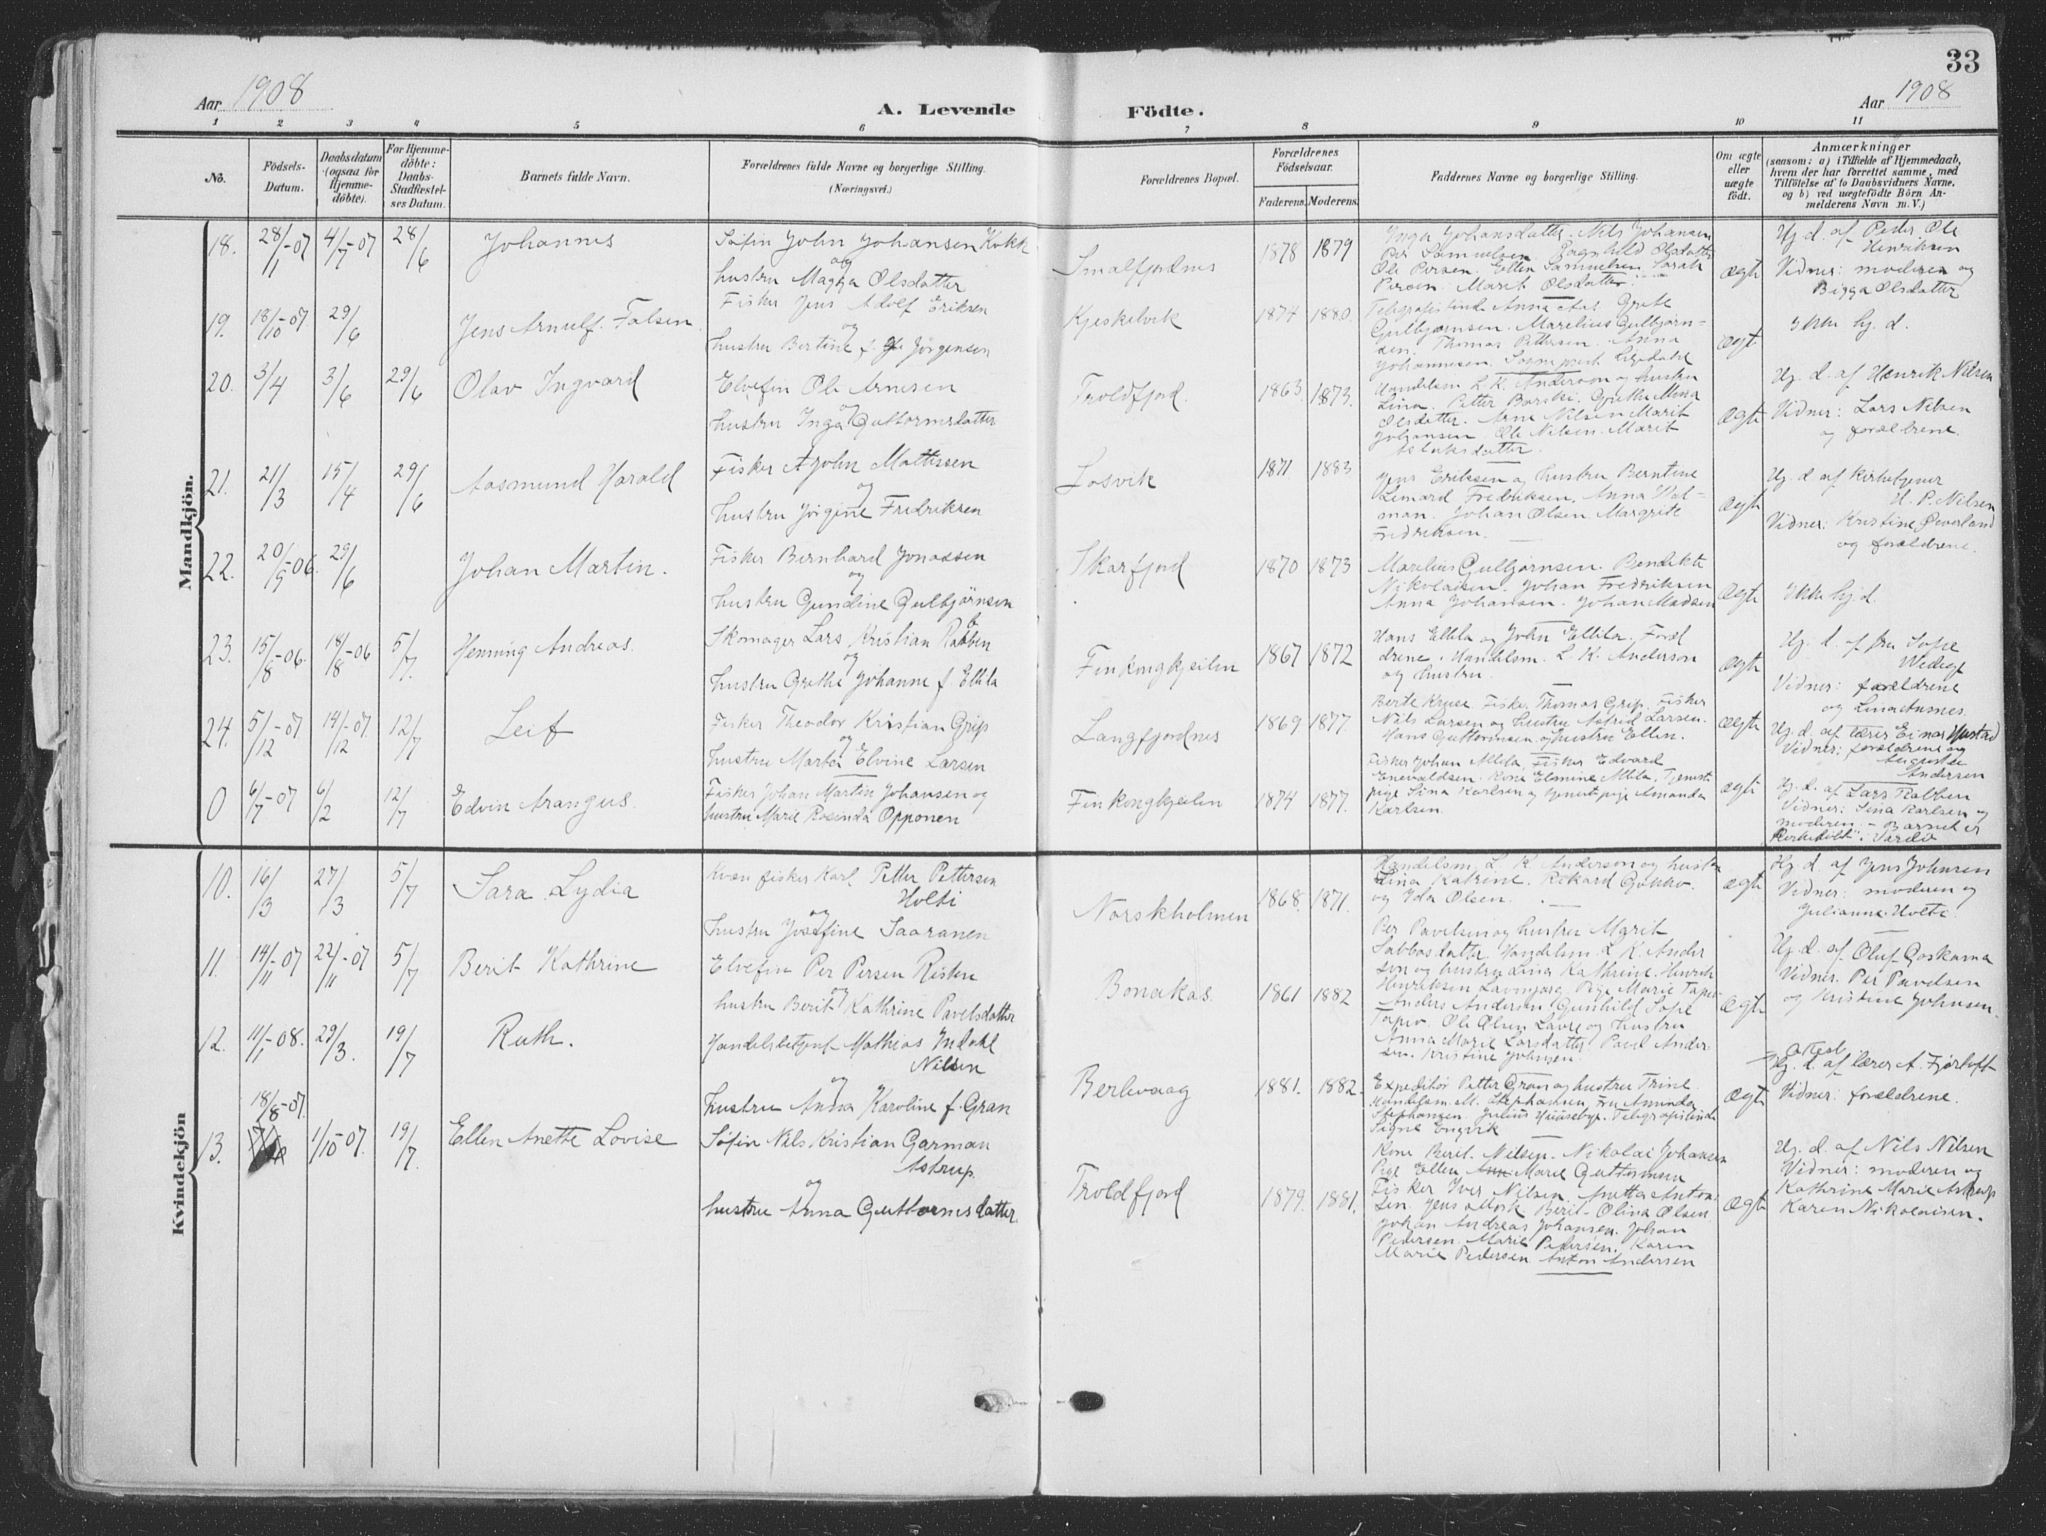 33
Aar 1908 A. Levende Födte. Aar 1908
1 2 3 4 5 6 7 8 9 10 11
No. Födsels-Datum. Daabsdatum (ogsaa for Hjemmedöbte). For Hjemmedöbte: Daabs-Stadfæstelses Datum. Barnets fulde Navn. Forældrenes fulde Navne og borgerlige Stilling. (Næringsvei.) Forældrenes Bopæl. Forældrenes Födselsaar. Faderens. Moderens. Faddernes Navne og borgerlige Stilling. Om ægte eller uægte födt. Anmærkninger
(saasom: a) i Tilfælde af Hjemmedaab,
hvem der har forrettet samme, med
Tilföielse af to Daabsvidners Navne.
og b) ved uægtefödte Börn Anmelderens Navn m. V.)
Mandkjön.
18. 28/1-07 4/7-07 28/6 Johannes
Søfin John Johansen Kokk
og
hustru Magga Olsdatter
Smalfjordnes 1878 1879
Inga Johansdatter. Nils Johansen
Per Samuelsen Ragnhild Olsdatter
Ole Persen. Ellen Samuelsen. Sarah
Persen. Marit Olsdatter.
ægte
Hj. d. af Peder Ole
Henriksen
Vidner: moderen og
Bigga Olsdatter
19. 18/10-07 29/6 Jens Arnulf Falsen
Fisker Jens Adolf Eriksen
og
hustru Bertine f. Jörgensen
Kjeskelvik 1874 1880.
Telegrafistinde Anna Aas Grete
Gulbjørnsen. Marelius Gulbjørnsen.
Thomas Pettersen. Anna
Johannesen. Sogneprest
ægte
Ikke hj. d.
20. 3/4 3/6 29/6 Olav Ingvard
Elvefin Ole Arnesen
og
hustru Inga Guttormsdatter
Troldfjord. 1863. 1873.
Handelsm. L. K. Anderson og hustru
Lina. Petter Grethe Mina
Olsdatter. Ane Nilsen Marit
Johansen Ole Nilsen. Marit
Aslaksdatter.
ægte
Hj. d. af Henrik Nilsen
Vidner: Lars Nilsen
og forældrene.
21. 21/3 15/4 29/6 Aasmund Harald
Fisker John Mattissen
og
hustru Jørgine Fredriksen
Losvik 1871 1883
Jens Eriksen og hustru Berntine
Lenard Fredriksen. Anna Halman.
Johan Olsen. Margrite
Fredriksen.
ægte
Hj. d. af kirketjener
H. P. Nilsen
Vidner: Kristine Øverland
og forældrene.
22. 20/9-06. 29/6 Johan Martin.
Fisker Bernhard Jonassen
og
hustru Gundine Gulbjörnsen
Skarfjord 1870 1873
Marelius Gulbjørnsen. Bendikte
Nikolaisen. Johan Fredriksen
Anna Johansen. Johan Madsen
ægte
Ikke hj. d.
23. 15/8-06. 18/8-06 5/7. Henning Andreas.
Skomager Lars Kristian Rabben
og
hustru Grethe Johanne f. Ellila
Finkongkjeilen 1867 1872
Hans Ellila og John Ellila. Forældrene.
Handelsm. L. K. Anderson
og hustru.
ægte
Hj. d. af fru Sofie
Wedege
Vidner: forældrene
og Lina Aasnes.
24. 5/12-07 14/12-07. 12/7 Leif
Fisker Theodor Kristian Grip
og
hustru Marta Elvine Larsen
Langfjordnes 1869 1877.
Berte Kruse Fisker Thomas Grip. Fisker
Nils Larsen og hustru Astrid Larsen.
Hans Guttormsen og hustru Ellen.
ægte
Hj. d. af lærer Einar Hustad
Vidner: forældrene og
Auguste
Andersen
0 6/7-07 6/2 12/7 Edvin Arangus.
Fisker Johan Martin Johansen og
hustru Marie Rosinda Opponen
Finkongkjeilen 1874 1877.
Fisker Johan Allila, Fisker Edvard
Enevaldsen. Kone Elmine Allila, Tjenestpige
Lina Karlsen og tjenestpige Amanda
Karlsen.
ægte
Hj. d. af Lars Rabben
Vidner: Lina Karlsen og
moderen. - Barnet er
"kirkedøbt" i Vardø
Kvindekjön
10. 16/3 27/3 5/7 Sara Lydia
Kvæn fisker Karl Petter Pettersen
Holti
og
hustru Josefine Saaranen
Norskholmen 1868. 1871.
Handelsm. L. K. Anderson og hustru
Lina Katrine. Rikard
og Ida Olsen.
ægte
Hj. d. af Jens Johnsen
Vidner: moderen og
Julianne Holte.
11. 14/11-07 22/11-07 5/7 Berit Kathrine
Elvefin Per Persen Risten
og
hustru Berit Kathrine Pavelsdatter
Bonakas. 1861 1882
Per Pavelsen og hustru Marit
Sabbasdatter. Handelsm. L. K. Anderson
og hustru Lina Kathrine. Henrik
Henriksen Pige Marie
Anders Andersen Gunhild Sofie
Ole Olsen Lavre og hustru
Anna Marie Larsdatter. Paul Andersen.
Kristine Johnsen.
ægte
Hj. d. af Oluf
Vidner: Per Pavelsen
og Kristine Johnsen.
12. 11/1-08. 29/3. 19/7 Ruth.
Handelsbetjent Mathias Indahl
Nilsen
og
hustru Anna Karoline f. Gran
Berlevaag 1881. 1882.
Expeditør Petter Gran og hustru Trine
Handelsm. M. Stephansen, Fru Amanda
Stephansen. Julius Telegrafistinde
Signe Engvik
ægte
attest
Hj. d. af lærer A. Fjørtoft
Vidner: forældrene.
13. 18/8-07. 1/10-07 19/7. Ellen Anette Lovise
Søfin Nils Kristian Garman
Astrup.
og
hustru Anna Guttormsdatter.
Troldfjord 1879. 1881.
Kone Berit Nilsen. Nikolai Johansen
Pige Ellen Marie Guttormsen
Fisker Iver Nilsen. Anetta Antonsen.
Jens Berit Olina Olsen.
Johan Andreas Johansen. Johan
Pedersen. Marie Pedersen. Karen
Marie Pedersen. Anton Andersen
ægte
Hj. d. af Nils Nilsen
Vidner: moderen og
Kathrine Marie Astrup
Karen Nikolaisen.